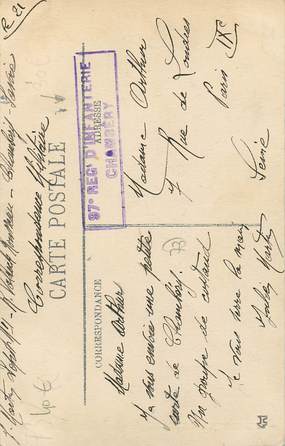 R 21
Correspondance Militaire
CARTE POSTALE
CORRESPONDANCE
ADRESSE
97e REGt D'INFANTERIE
CHAMBERY
Madame Arthur
Je vous envoie une petite
carte de Chambéry.
Un groupe de
Je vous serre la main
Jules
73
Madame Arthur
7 Rue de Londres
Paris IXe
Seine